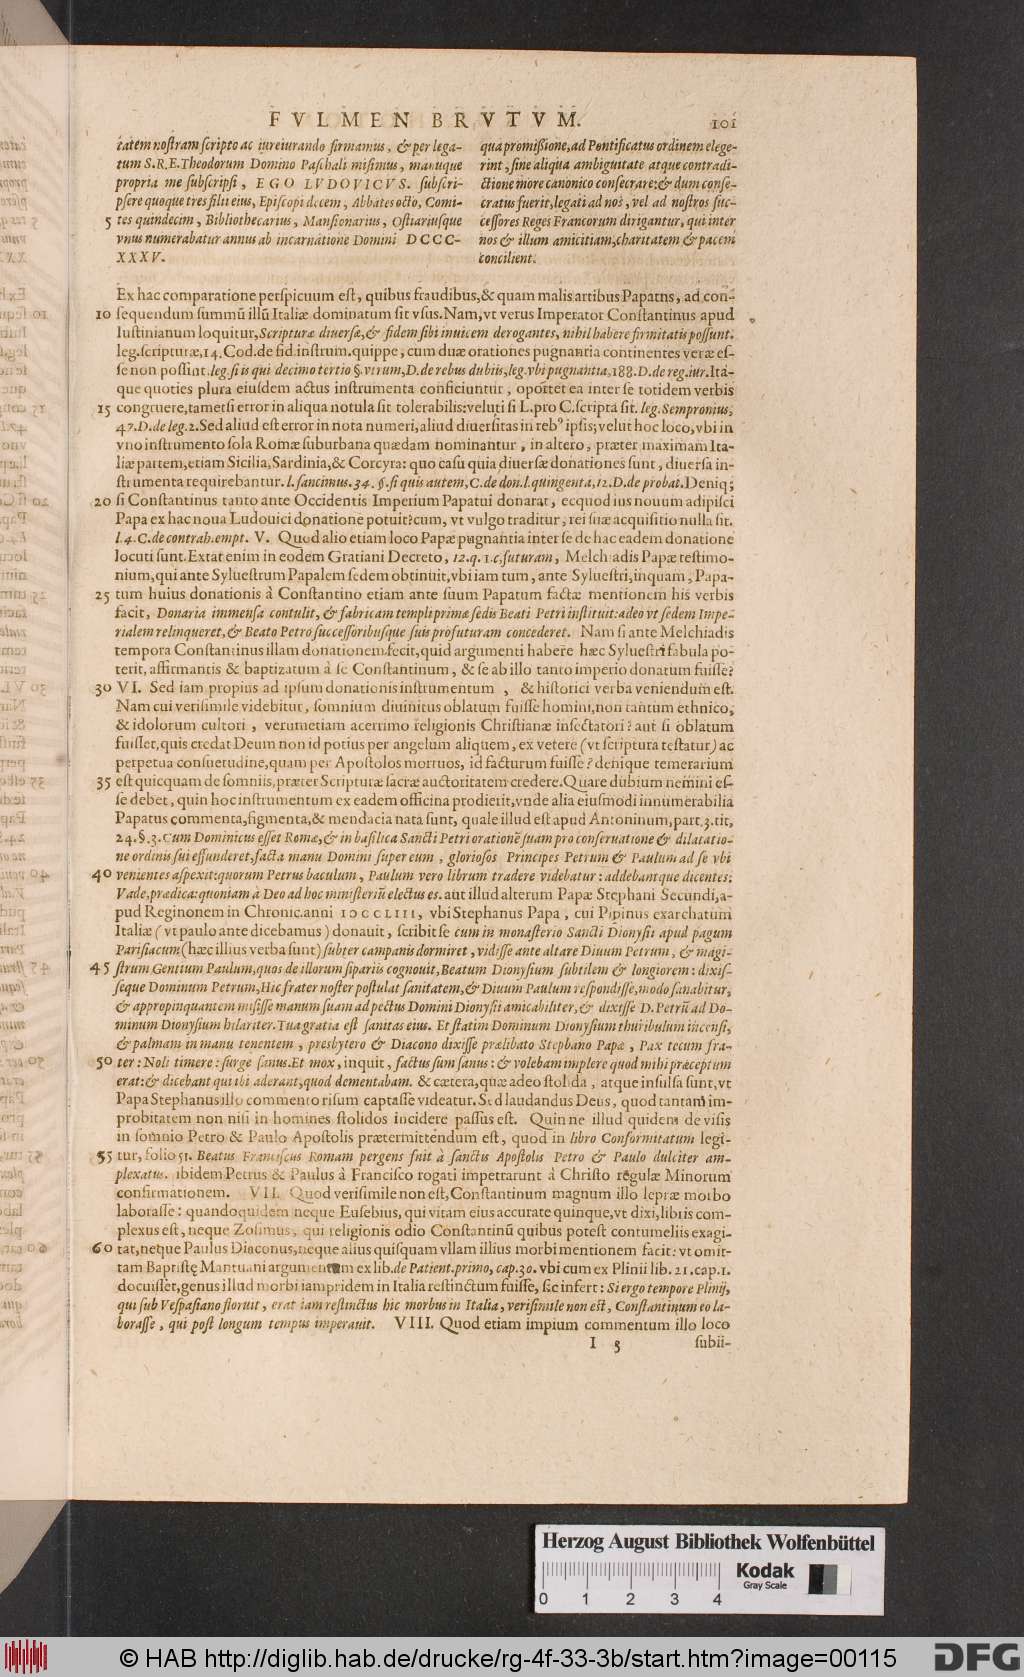 FVLMEN BRVTVM. 101
tatem nostram scripto ac iureiurando firmamus, & per lega-
tum S.R.E. Theodorum Domino Paschali misimus, manuque
propria me subscripsi, EGO LVDOVICVS. subscri-
psere quoque tres filii eius, Episcopi decem, Abbates octo, Comi-
5 tes quindecim, Bibliothecarius, Mansionarius, Ostiariusque
vnus numerabatur annus ab incarnatione Domini DCCC-
XXXV.
qua promißione, ad Pontificatus ordinem elege-
rint, sine aliqua ambiguitate atque contradi-
ctione more canonico consecrare: & dum conse-
cratus fuerit, legati ad nos, vel ad nostros suc-
cessores Reges Francorum dirigantur, qui inter
nos & illum amicitiam, charitatem & pacem
concilient.
Ex hac comparatione perspicuum est, quibus fraudibus, & quam malis artibus Papatus, ad con-
10 sequendum summũ illũ Italiæ dominatum sit vsus. Nam, vt verus Imperator Constantinus apud
Iustinianum loquitur, Scripturæ diuersæ, & fidem sibi inuicem derogantes, nihil habere firmitatis possunt.
leg. scripturæ, 14. Cod. de fid. instrum. quippe, cum duæ orationes pugnantia continentes veræ es-
se non possint. leg. si is qui decimo tertio §. vtrum, D. de rebus dubiis, leg. vbi pugnantia, 188. D. de reg. iur. Ita-
que quoties plura eiusdem actus instrumenta conficiuntur, oportet ea inter se totidem verbis
15 congruere, tametsi error in aliqua notula sit tolerabilis: veluti si L. pro C. scripta sit. leg. Sempronius,
47. D. de leg. 2. Sed aliud est error in nota numeri, aliud diuersitas in reb⁹ ipsis; velut hoc loco, vbi in
vno instrumento sola Romæ suburbana quædam nominantur, in altero, præter maximam Ita-
liæ partem, etiam Sicilia, Sardinia, & Corcyra: quo casu quia diuersæ donationes sunt, diuersa in-
strumenta requirebantur. l. sancimus. 34. §. si quis autem, C. de don. l. quingenta, 12. D. de probat. Deniq;
20 si Constantinus tanto ante Occidentis Imperium Papatui donarat, ecquod ius nouum adipisci
Papa ex hac noua Ludouici donatione potuit? cum, vt vulgo traditur, rei suæ acquisitio nulla sit.
l. 4. C. de contrah. empt. V. Quod alio etiam loco Papæ pugnantia inter se de hac eadem donatione
locuti sunt. Extat enim in eodem Gratiani Decreto, 12. q. 1. c. futuram, Melchiadis Papæ testimo-
nium, qui ante Syluestrum Papalem sedem obtinuit, vbi iam tum, ante Syluestri, inquam, Papa-
25 tum huius donationis à Constantino etiam ante suum Papatum factæ mentionem his verbis
facit, Donaria immensa contulit, & fabricam templi primæ sedis Beati Petri instituit: adeo vt sedem Impe-
rialem relinqueret, & Beato Petro successoribusque suis profuturam concederet. Nam si ante Melchiadis
tempora Constantinus illam donationem fecit, quid argumenti habere hæc Syluestri fabula po-
terit, affirmantis & baptizatum à se Constantinum, & se ab illo tanto imperio donatum fuisse?
30 VI. Sed iam propius ad ipsum donationis instrumentum, & historici verba veniendum est.
Nam cui verisimile videbitur, somnium diuinitus oblatum fuisse homini, non tantum ethnico,
& idolorum cultori, verumetiam acerrimo religionis Christianæ insectatori? aut si oblatum
fuisset, quis credat Deum non id potius per angelum aliquem, ex vetere (vt scriptura testatur) ac
perpetua consuetudine, quam per Apostolos mortuos, id facturum fuisse? denique temerarium
35 est quicquam de somniis, præter Scripturæ sacræ auctoritatem credere. Quare dubium nemini es-
se debet, quin hoc instrumentum ex eadem officina prodierit, vnde alia eiusmodi innumerabilia
Papatus commenta, figmenta, & mendacia nata sunt, quale illud est apud Antoninum, part. 3. tit.
24. §. 3. Cum Dominicus esset Romæ, & in basilica Sancti Petri orationẽ suam pro conseruatione & dilatatio-
ne ordinis sui effunderet, facta manu Domini super eum, gloriosos Principes Petrum & Paulum ad se vbi
40 venientes aspexit: quorum Petrus baculum, Paulum vero librum tradere videbatur: addebantque dicentes:
Vade, prædica: quoniam à Deo ad hoc ministeriũ electus es. aut illud alterum Papæ Stephani Secundi, a-
pud Reginonem in Chronic. anni IↃCCLIII, vbi Stephanus Papa, cui Pipinus exarchatum
Italiæ (vt paulo ante dicebamus) donauit, scribit se cum in monasterio Sancti Dionysii apud pagum
Parisiacum (hæc illius verba sunt) subter campanis dormiret, vidisse ante altare Diuum Petrum, & magi-
45 strum Gentium Paulum, quos de illorum sipariis cognouit, Beatum Dionysium subtilem & longiorem: dixis-
seque Dominum Petrum, Hic frater noster postulat sanitatem, & Diuum Paulum respondisse, modo sanabitur,
& appropinquantem misisse manum suam ad pectus Domini Dionysii amicabiliter, & dixisse D. Petrũ ad Do-
minum Dionysium hilariter. Tua gratia est sanitas eius. Et statim Dominum Dionysium thuribulum incensi,
& palmam in manu tenentem, presbytero & Diacono dixisse prælibato Stephano Papæ, Pax tecum fra-
50 ter: Noli timere: surge sanus. Et mox, inquit, factus sum sanus: & volebam implere quod mihi præceptum
erat: & dicebant qui ibi aderant, quod dementabam. & cætera, quæ adeo stolida, atque insulsa sunt, vt
Papa Stephanus illo commento risum captasse videatur. Sed laudandus Deus, quod tantam im-
probitatem non nisi in homines stolidos incidere passus est. Quin ne illud quidem de visis
in somnio Petro & Paulo Apostolis prætermittendum est, quod in libro Conformitatum legi-
55 tur, folio 51. Beatus Franciscus Romam pergens fuit à sanctis Apostolis Petro & Paulo dulciter am-
plexatus. ibidem Petrus & Paulus à Francisco rogati impetrarunt à Christo regulæ Minorum
confirmationem. VII. Quod verisimile non est, Constantinum magnum illo lepræ morbo
laborasse: quandoquidem neque Eusebius, qui vitam eius accurate quinque, vt dixi, libris com-
plexus est, neque Zosimus, qui religionis odio Constantinũ quibus potest contumeliis exagi-
60 tat, neque Paulus Diaconus, neque alius quisquam vllam illius morbi mentionem facit: vt omit-
tam Baptistę Mantuani argumentum ex lib. de Patient. primo, cap. 30. vbi cum ex Plinii lib. 21. cap. 1.
docuisset, genus illud morbi iampridem in Italia restinctum fuisse, sic infert: Si ergo tempore Plinij,
qui sub Vespasiano floruit, erat iam restinctus hic morbus in Italia, verisimile non est, Constantinum eo la-
borasse, qui post longum tempus imperauit. VIII. Quod etiam impium commentum illo loco
I 5 subii-
Herzog August Bibliothek Wolfenbüttel
Kodak
Gray Scale
0 1 2 3 4
© HAB http://diglib.hab.de/drucke/rg-4f-33-3b/start.htm?image=00115
DFG